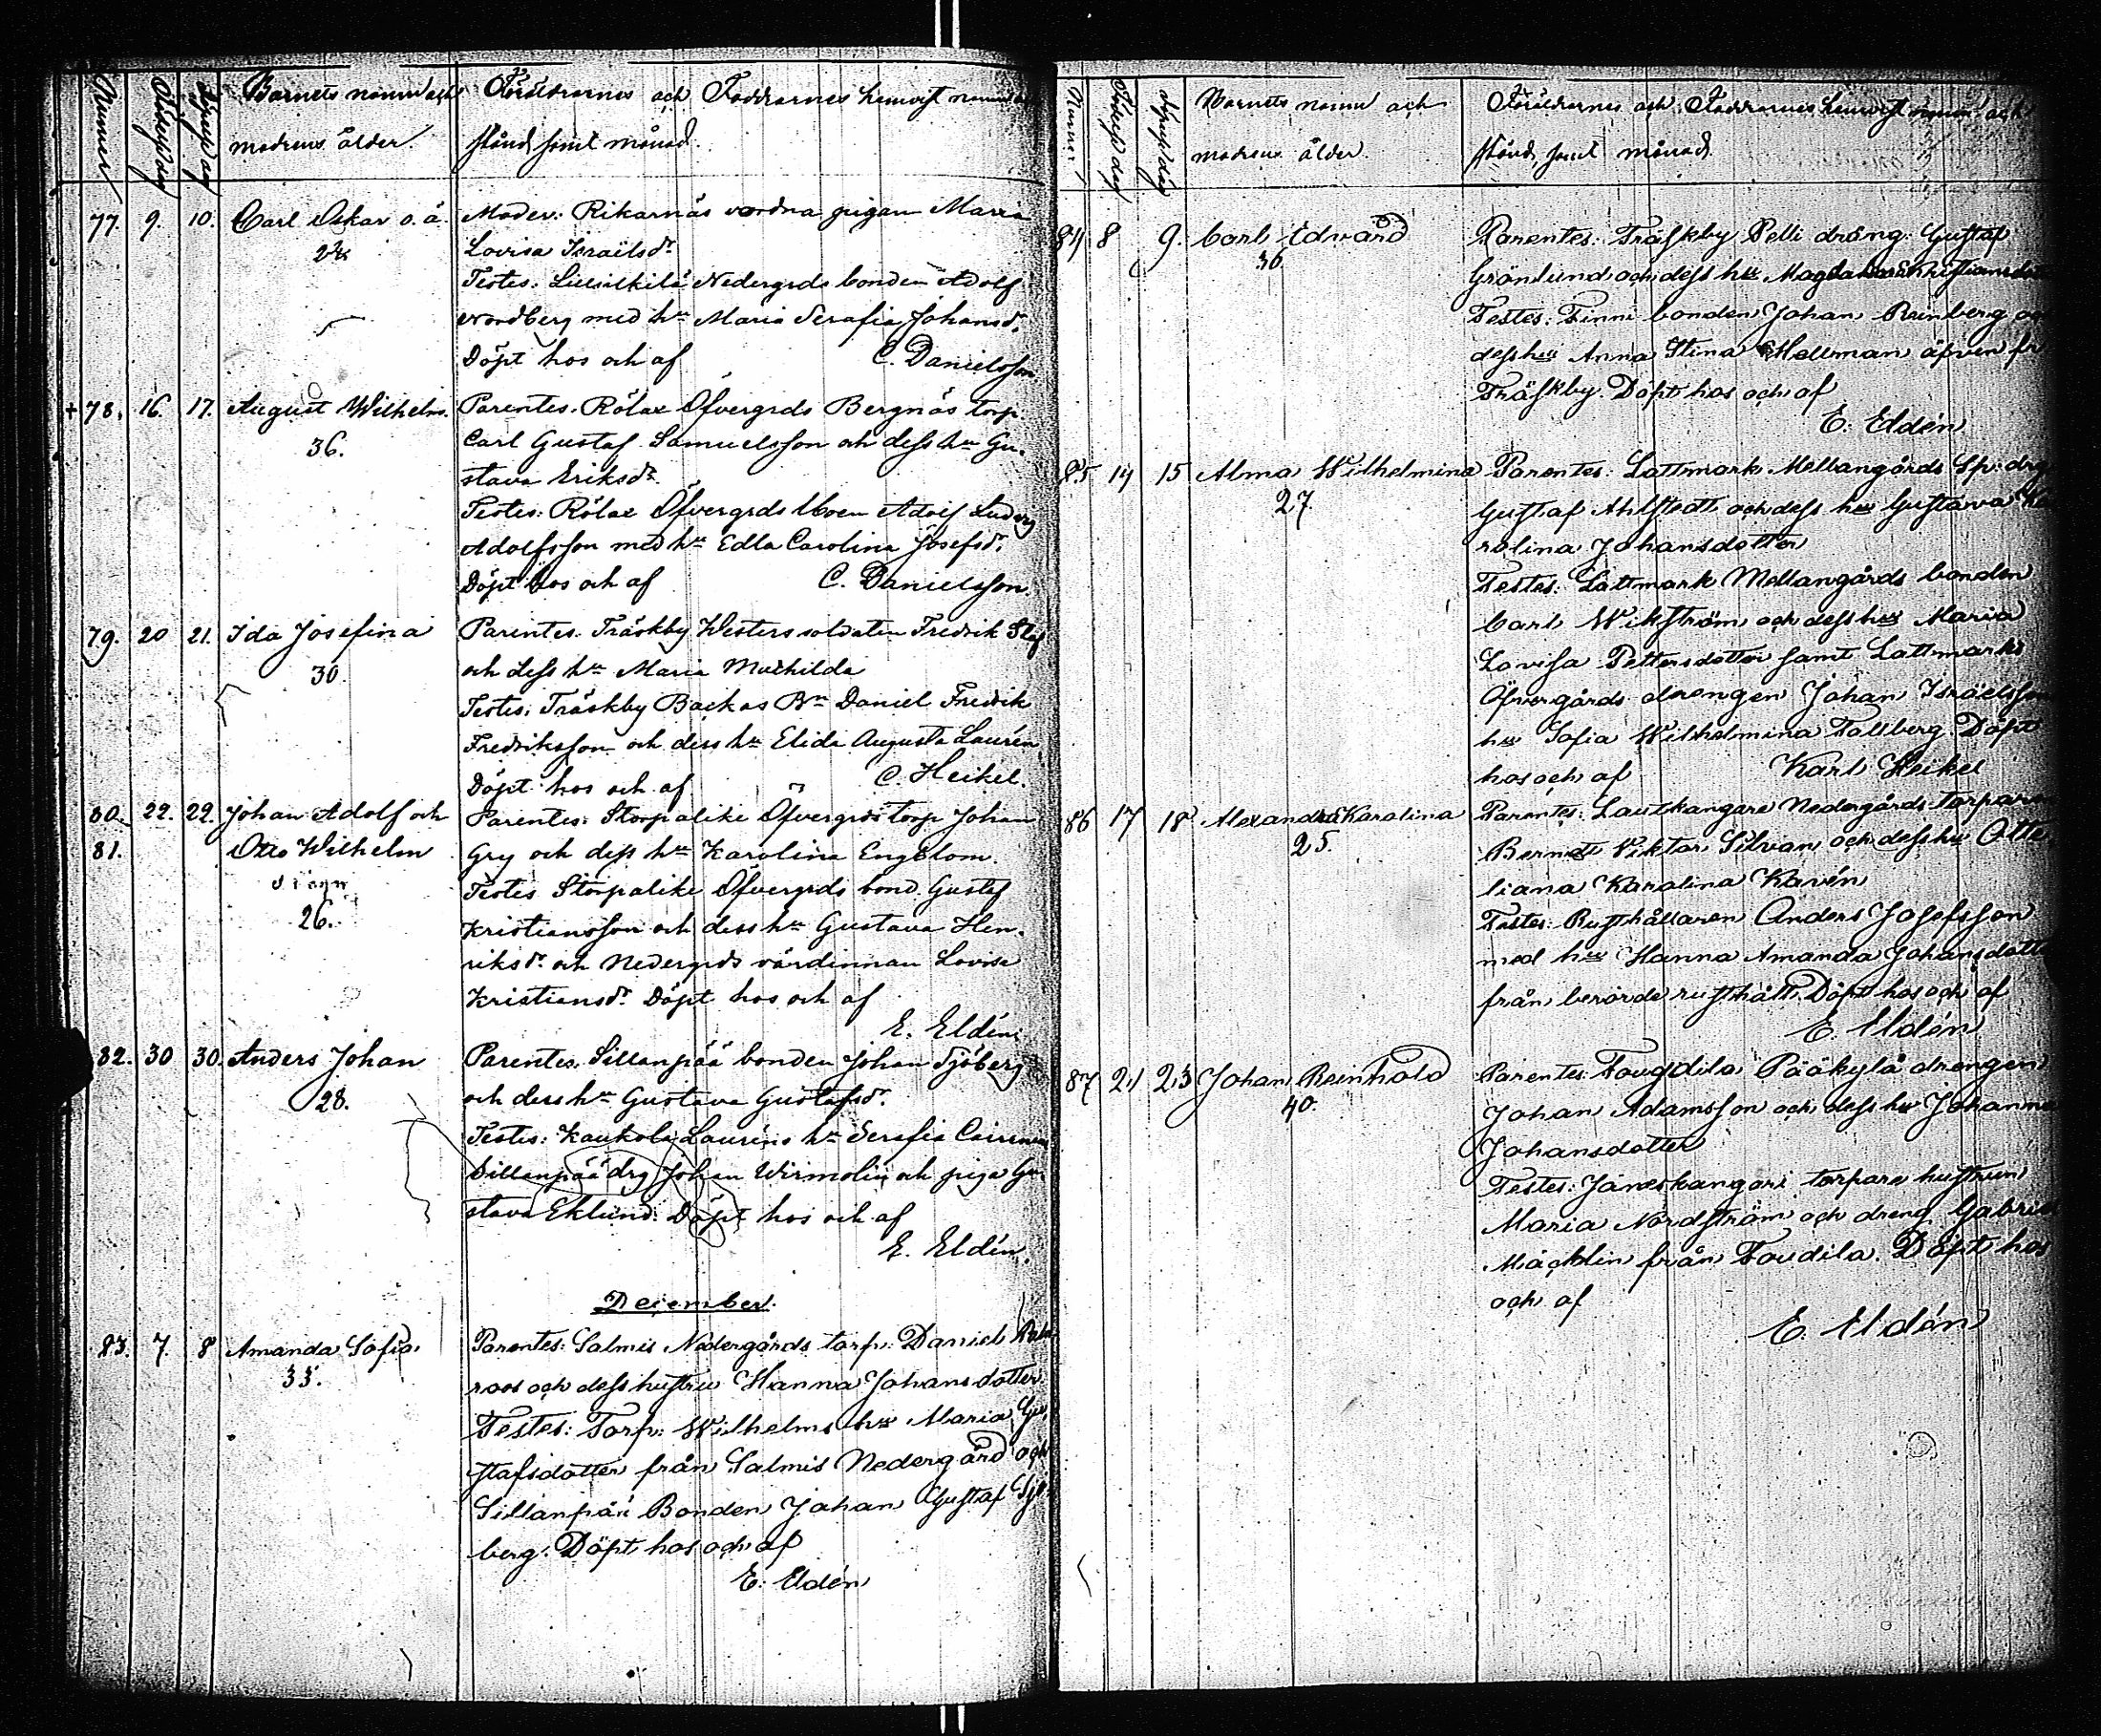 Numer Födelsedag Döpelsedag Barnets namn och Föräldrarnes och Faddrarnes hemvist namn
modrens ålder. stånd samt månad.
77. 9. 10. Carl Oskar o. ä. Moder: Rikarnäs vordna pigan Maria
Lovisa Israëlsdr
Testes: Nedergrds bonden Adolf
Nordberg med hu Maria Serafia Johansdr
Döpt hos och af C. Danielsson
+ 78. 16. 17. August Wilhelm. Parentes. Rölax Öfvergrds Bergnäs torp.
36. Carl Gustaf Samuelsson och dess hu Gu-
stava Eriksdr
Testes: Rölax Öfvergrds Adolf Ludvig
Adolfsson med hu Edla Carolina Josefsdr
Döpt hos och af C. Danielsson.
79. 20 21. Ida Josefina Parentes. Träskby Westers soldaten Fredrik
30. och dess hu Maria Mathilda
Testes: Träskby Backas Bn Daniel Fredrik
Fredriksson och dess hu Elida Augusta Laurén
Döpt hos och af C. Heikel.
80. 22. 22. Johan Adolf och Parentes: Storpalike Öfvergrds torp Johan
81. Otto Wilhelm Gry och dess hu Karolina Engblom.
Testes Storpalike Öfvergrds bond. Gustaf
26. Kristiansson och dess hu Gustava Hen-
riksdr och Nedergrds värdinnan Lovisa
Kristiansdr Döpt hos och af
E. Eldén
82. 30 30. Anders Johan Parentes. Sillanpää bonden Johan Sjöberg
28. och dess hu Gustava Gustafsdr.
Testes: Kaukola Lauréns hu Serafia
Sillanpää drg Johan Wirmolin och piga Gu-
stava Eklund. Döpt hos och af
E. Eldén.
December.
83. 7. 8 Amanda Sofia. Parentes: Salmis Nedergårds torp: Daniel
33. roos och dess hustru Hanna Johansdotter.
Testes: Torp: Wilhelms hu Maria Gu-
stafsdotter från Salmis Nedergård och
Sillanpää Bonden Johan Gustaf Sjö-
berg. Döpt hos och af
E. Eldén
Numer Födelsedag Döpelsedag Barnets namn och Föräldrarnes och Faddrarnes hemvist namn och
modrens ålder. stånd samt månad.
84 8 9. Carl Edvard Parentes: Träskby Pelli dräng: Gustaf
36 Grönlund och dess hu Magdalena Kristiansdotter
Testes: Finni bonden Johan Reinberg och
dess hu Anna Stina Hellman äfven fr
Träskby. Döpt hos och af
E. Eldén
85 14 15 Alma Wilhelmina Parentes: Lattmark Mellangårds drg
27. Gustaf Ahlstedt och dess hu Gustava Ka
rolina Johansdotter
Testes: Lattmark Mellangårds bonden
Carl Wikström och dess hu Maria
Lovisa Pettersdotter samt Lattmark
Öfvergårds drengen Johan Israelsson
hu Sofia Wilhelmina Fallberg. Döpt
hos och af Karl Heikel
86 17 18 Alexandra Karolina Parentes: Lautkangare Nedergårds torparen
25. Berndt Viktor Silvan och dess hu Otte
liana Karolina Kavén
Testes: Rusthållaren Anders Josefsson
med hu Hanna Amanda Johansdotter
från berörde rusthåll. Döpt hos och af
E. Eldén
87 21 23 Johan Reinhold Parentes: Tougdila Pääkylä drengen
40. Johan Adamsson och dess hu Johanna
Johansdotter
Testes: Janeskangari torpare hustrun
Maria Nordström och dreng Gabriel
Mäcklin från Toudila. Döpt hos
och af
E. Eldén